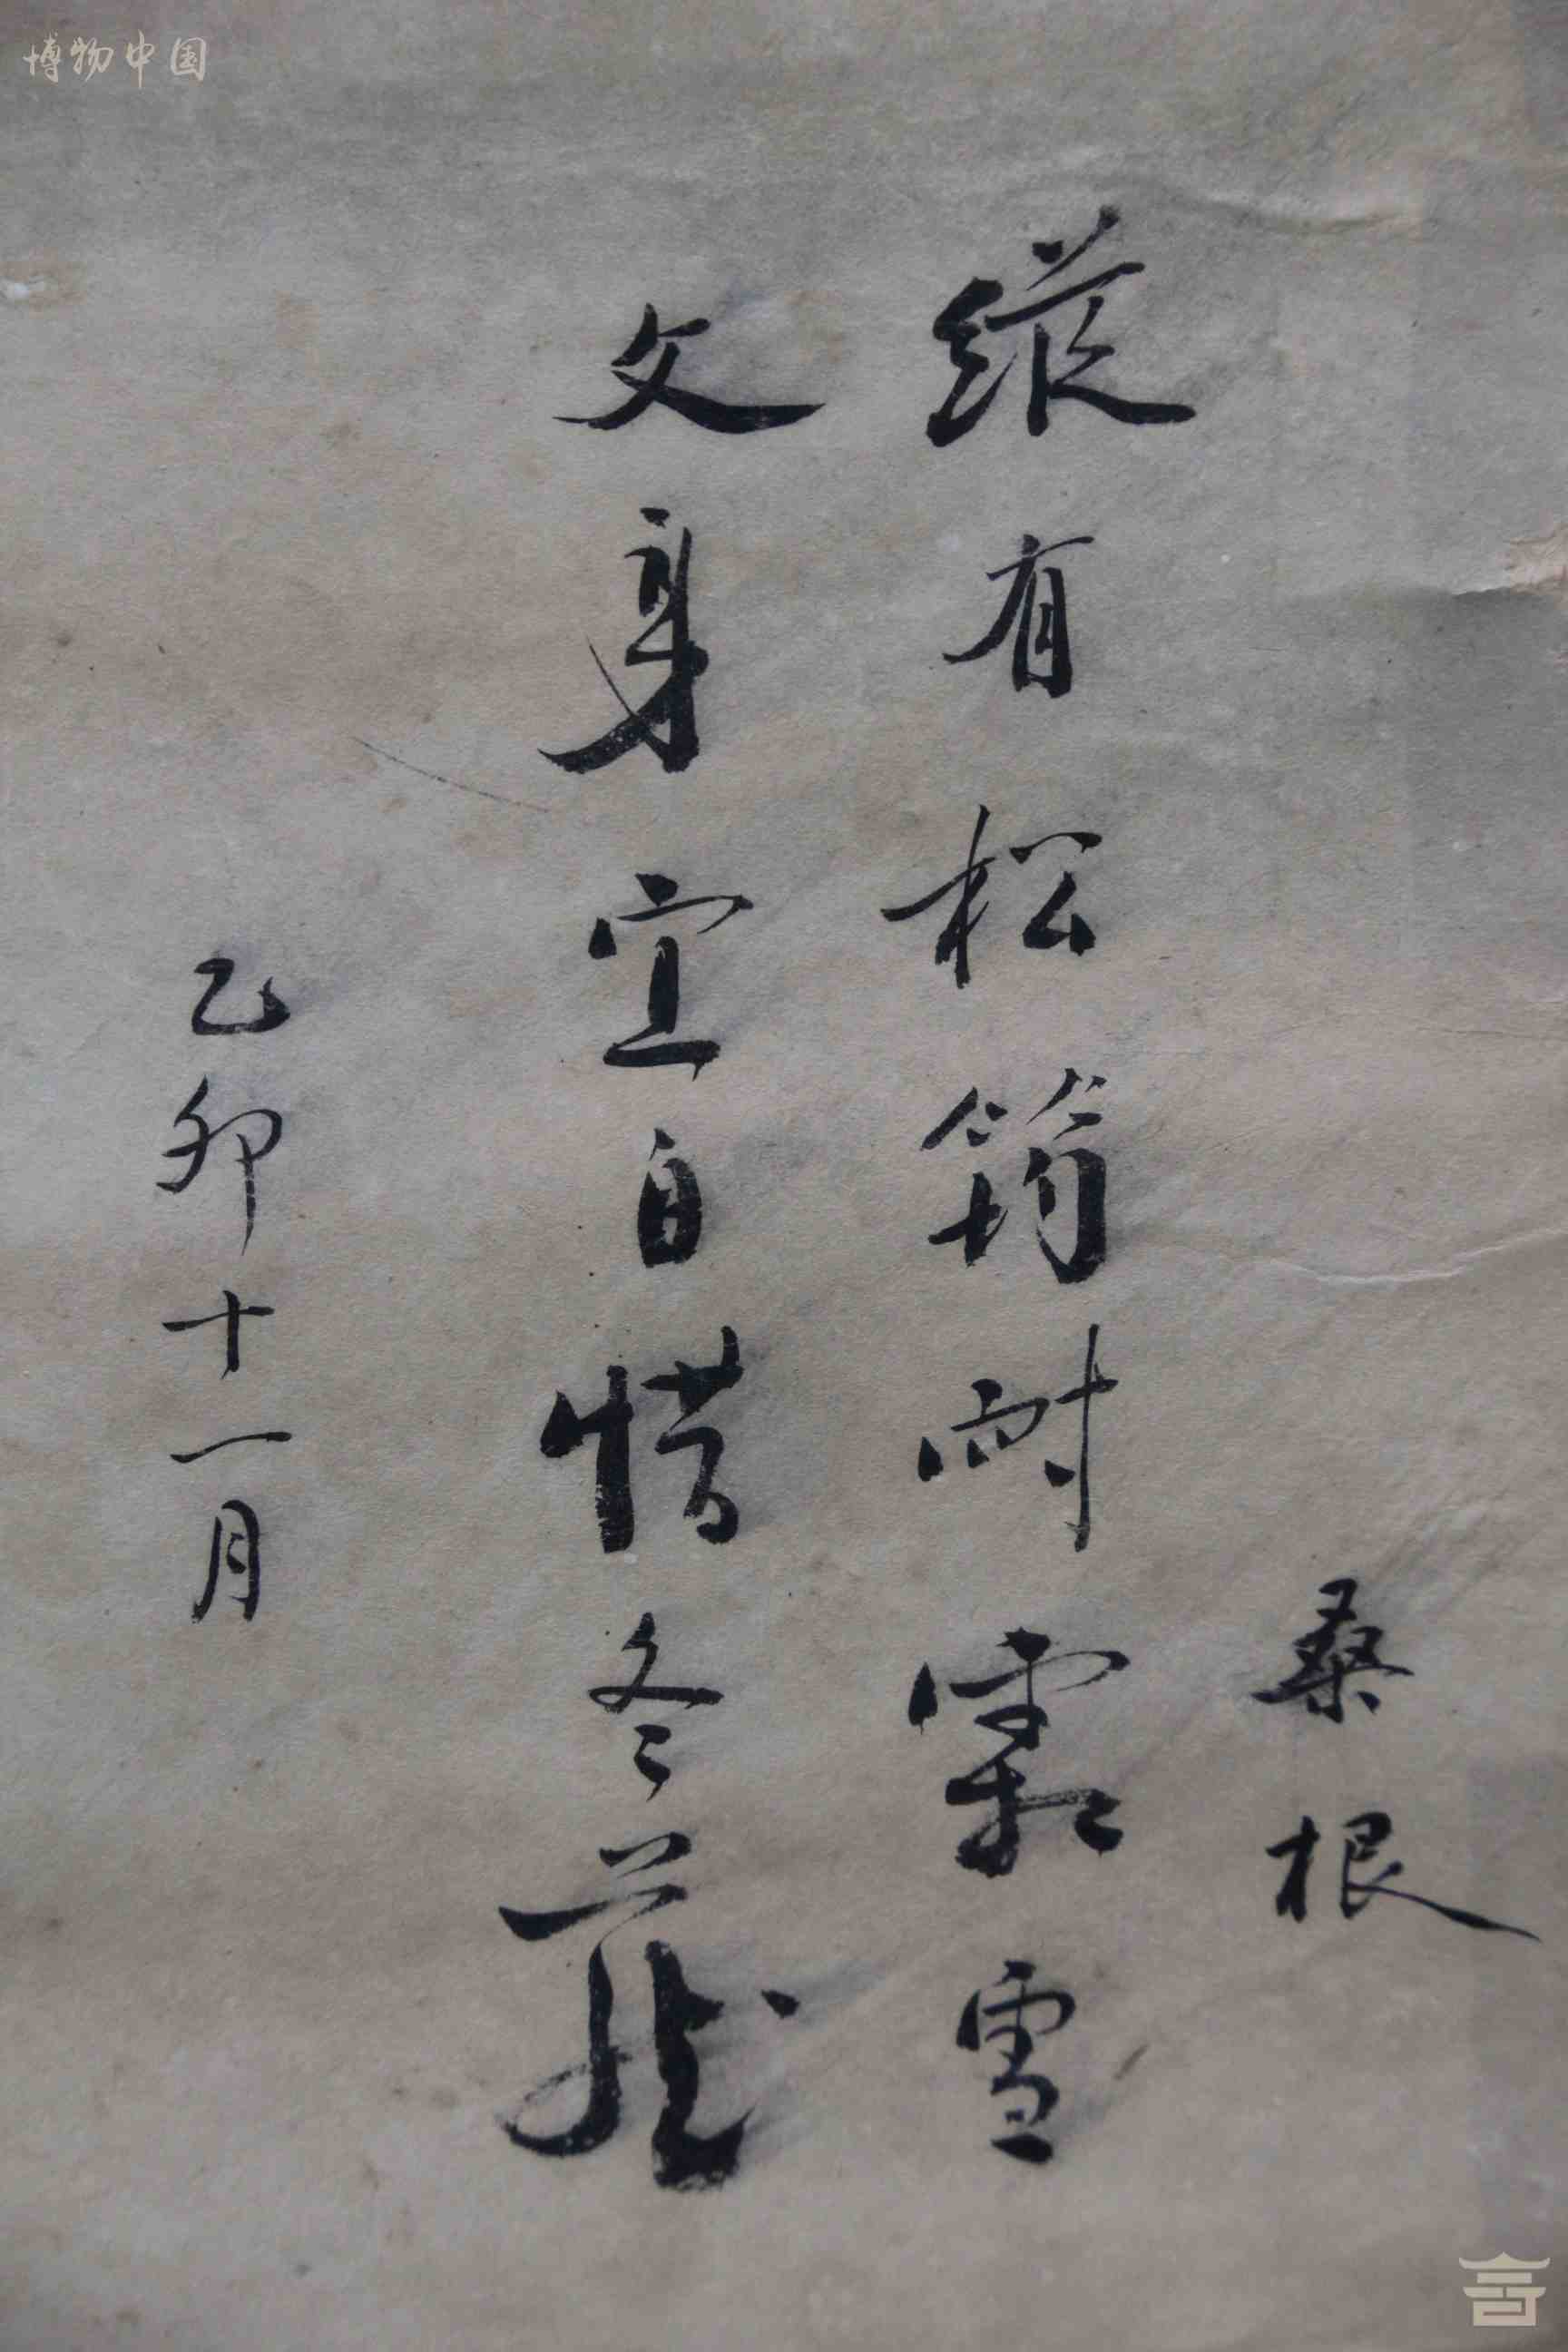 博物中国
桑根
纵有松筠耐霜雪
文身宜自惜冬藏
乙卯十一月